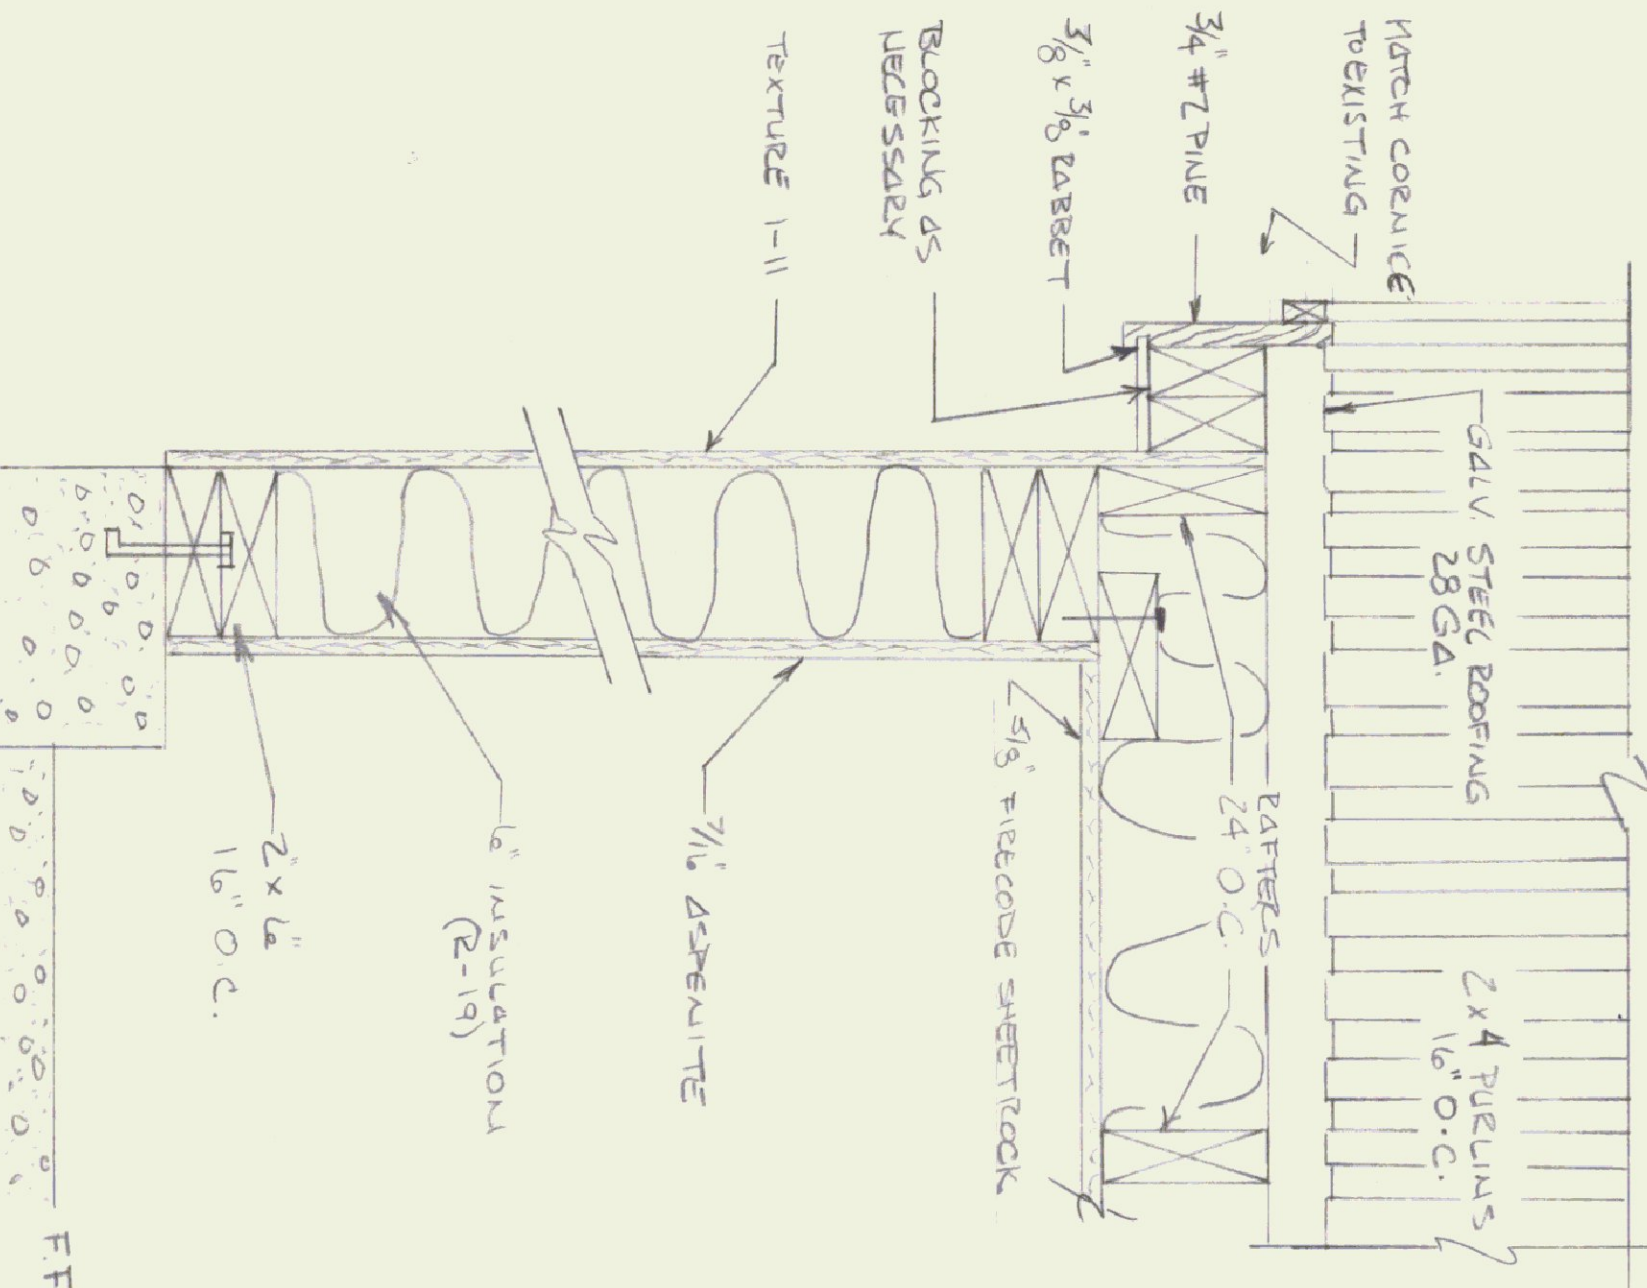 MATCH CORNICE
TO EXISTING
3/4" #2 PINE
3/8" x 3/8" RABBET
BLOCKING AS
NECESSARY
TEXTURE 1-11
GALV. STEEL ROOFING
28 GA.
2x4 PURLINS
16" O.C.
RAFTERS
24" O.C.
5/8" FIRECODE SHEETROCK
7/16" ASPENITE
6" INSULATION
(R-19)
2" x 6"
16" O.C.
F.F